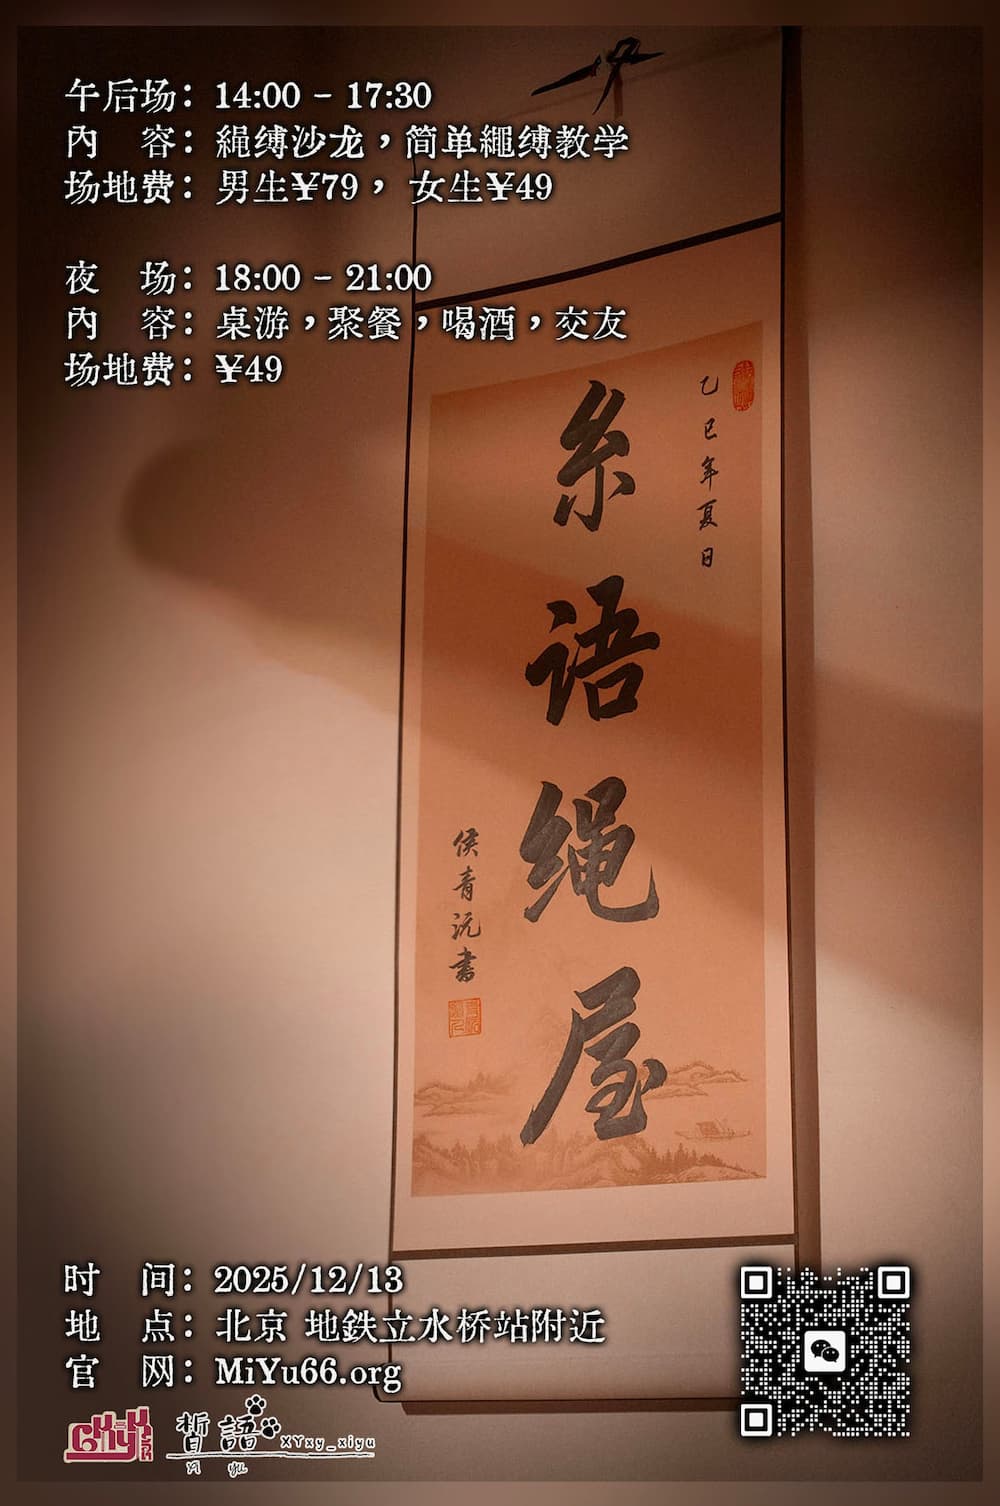 午后场：14:00 - 17:30
內　容：縄缚沙龙，简单繩缚教学
场地费：男生¥79，女生¥49
夜　场：18:00 - 21:00
內　容：桌游，聚餐，喝酒，交友
场地费：¥49
乙巳年夏日
糸语绳屋
侯青沅書
时　间：2025/12/13
地　点：北京 地鉄立水桥站附近
官　网：MiYu66.org
晳語
XYxy_xiyu
xi yu